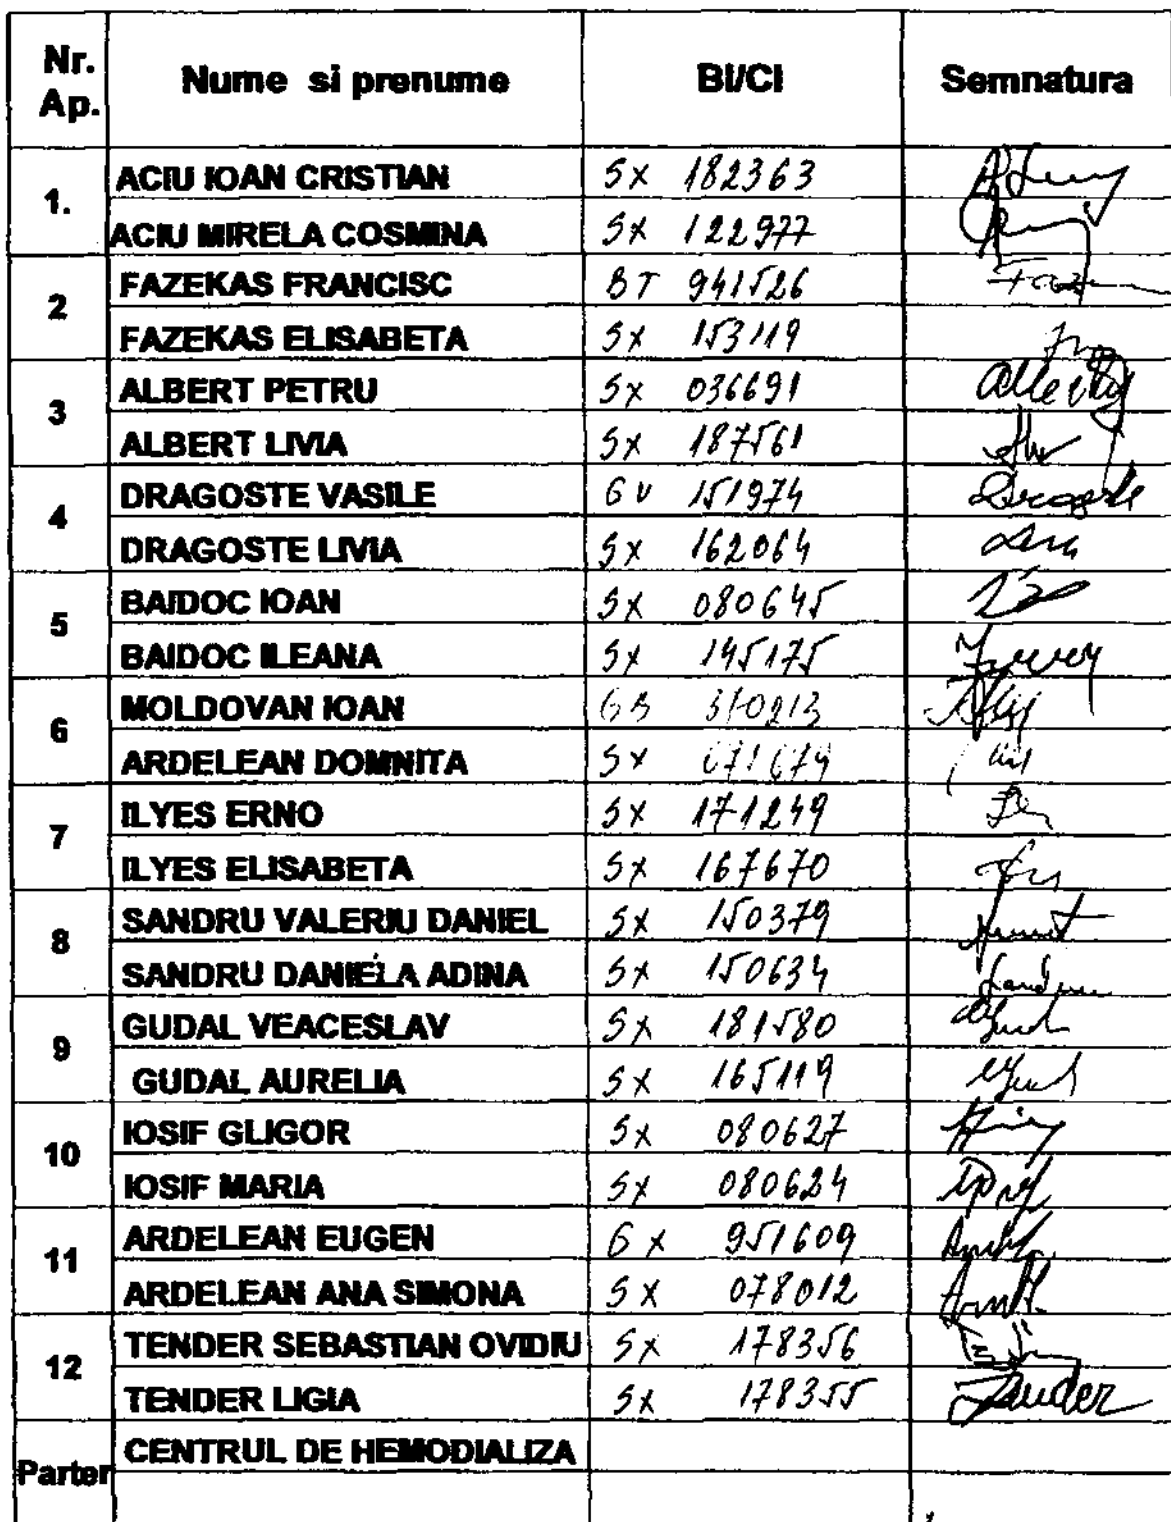 Nr. Ap. Nume si prenume BI/CI Semnatura
1. ACIU IOAN CRISTIAN SX 182363
ACIU MIRELA COSMINA SX 122977
2 FAZEKAS FRANCISC BT 941526
FAZEKAS ELISABETA SX 153119
3 ALBERT PETRU SX 036691
ALBERT LIVIA SX 187561
4 DRAGOSTE VASILE GV 151974
DRAGOSTE LIVIA SX 162064
5 BAIDOC IOAN SX 080645
BAIDOC ILEANA SX 145175
6 MOLDOVAN IOAN
ARDELEAN DOMNITA SX
7 ILYES ERNO SX 171249
ILYES ELISABETA SX 167670
8 SANDRU VALERIU DANIEL SX 150379
SANDRU DANIELA ADINA SX 150634
9 GUDAL VEACESLAV SX 181580
GUDAL AURELIA SX 165119
10 IOSIF GLIGOR SX 080627
IOSIF MARIA SX 080624
11 ARDELEAN EUGEN GX 951609
ARDELEAN ANA SIMONA SX 078012
12 TENDER SEBASTIAN OVIDIU SX 178356
TENDER LIGIA SX 178355 Tender
Parter CENTRUL DE HEMODIALIZA